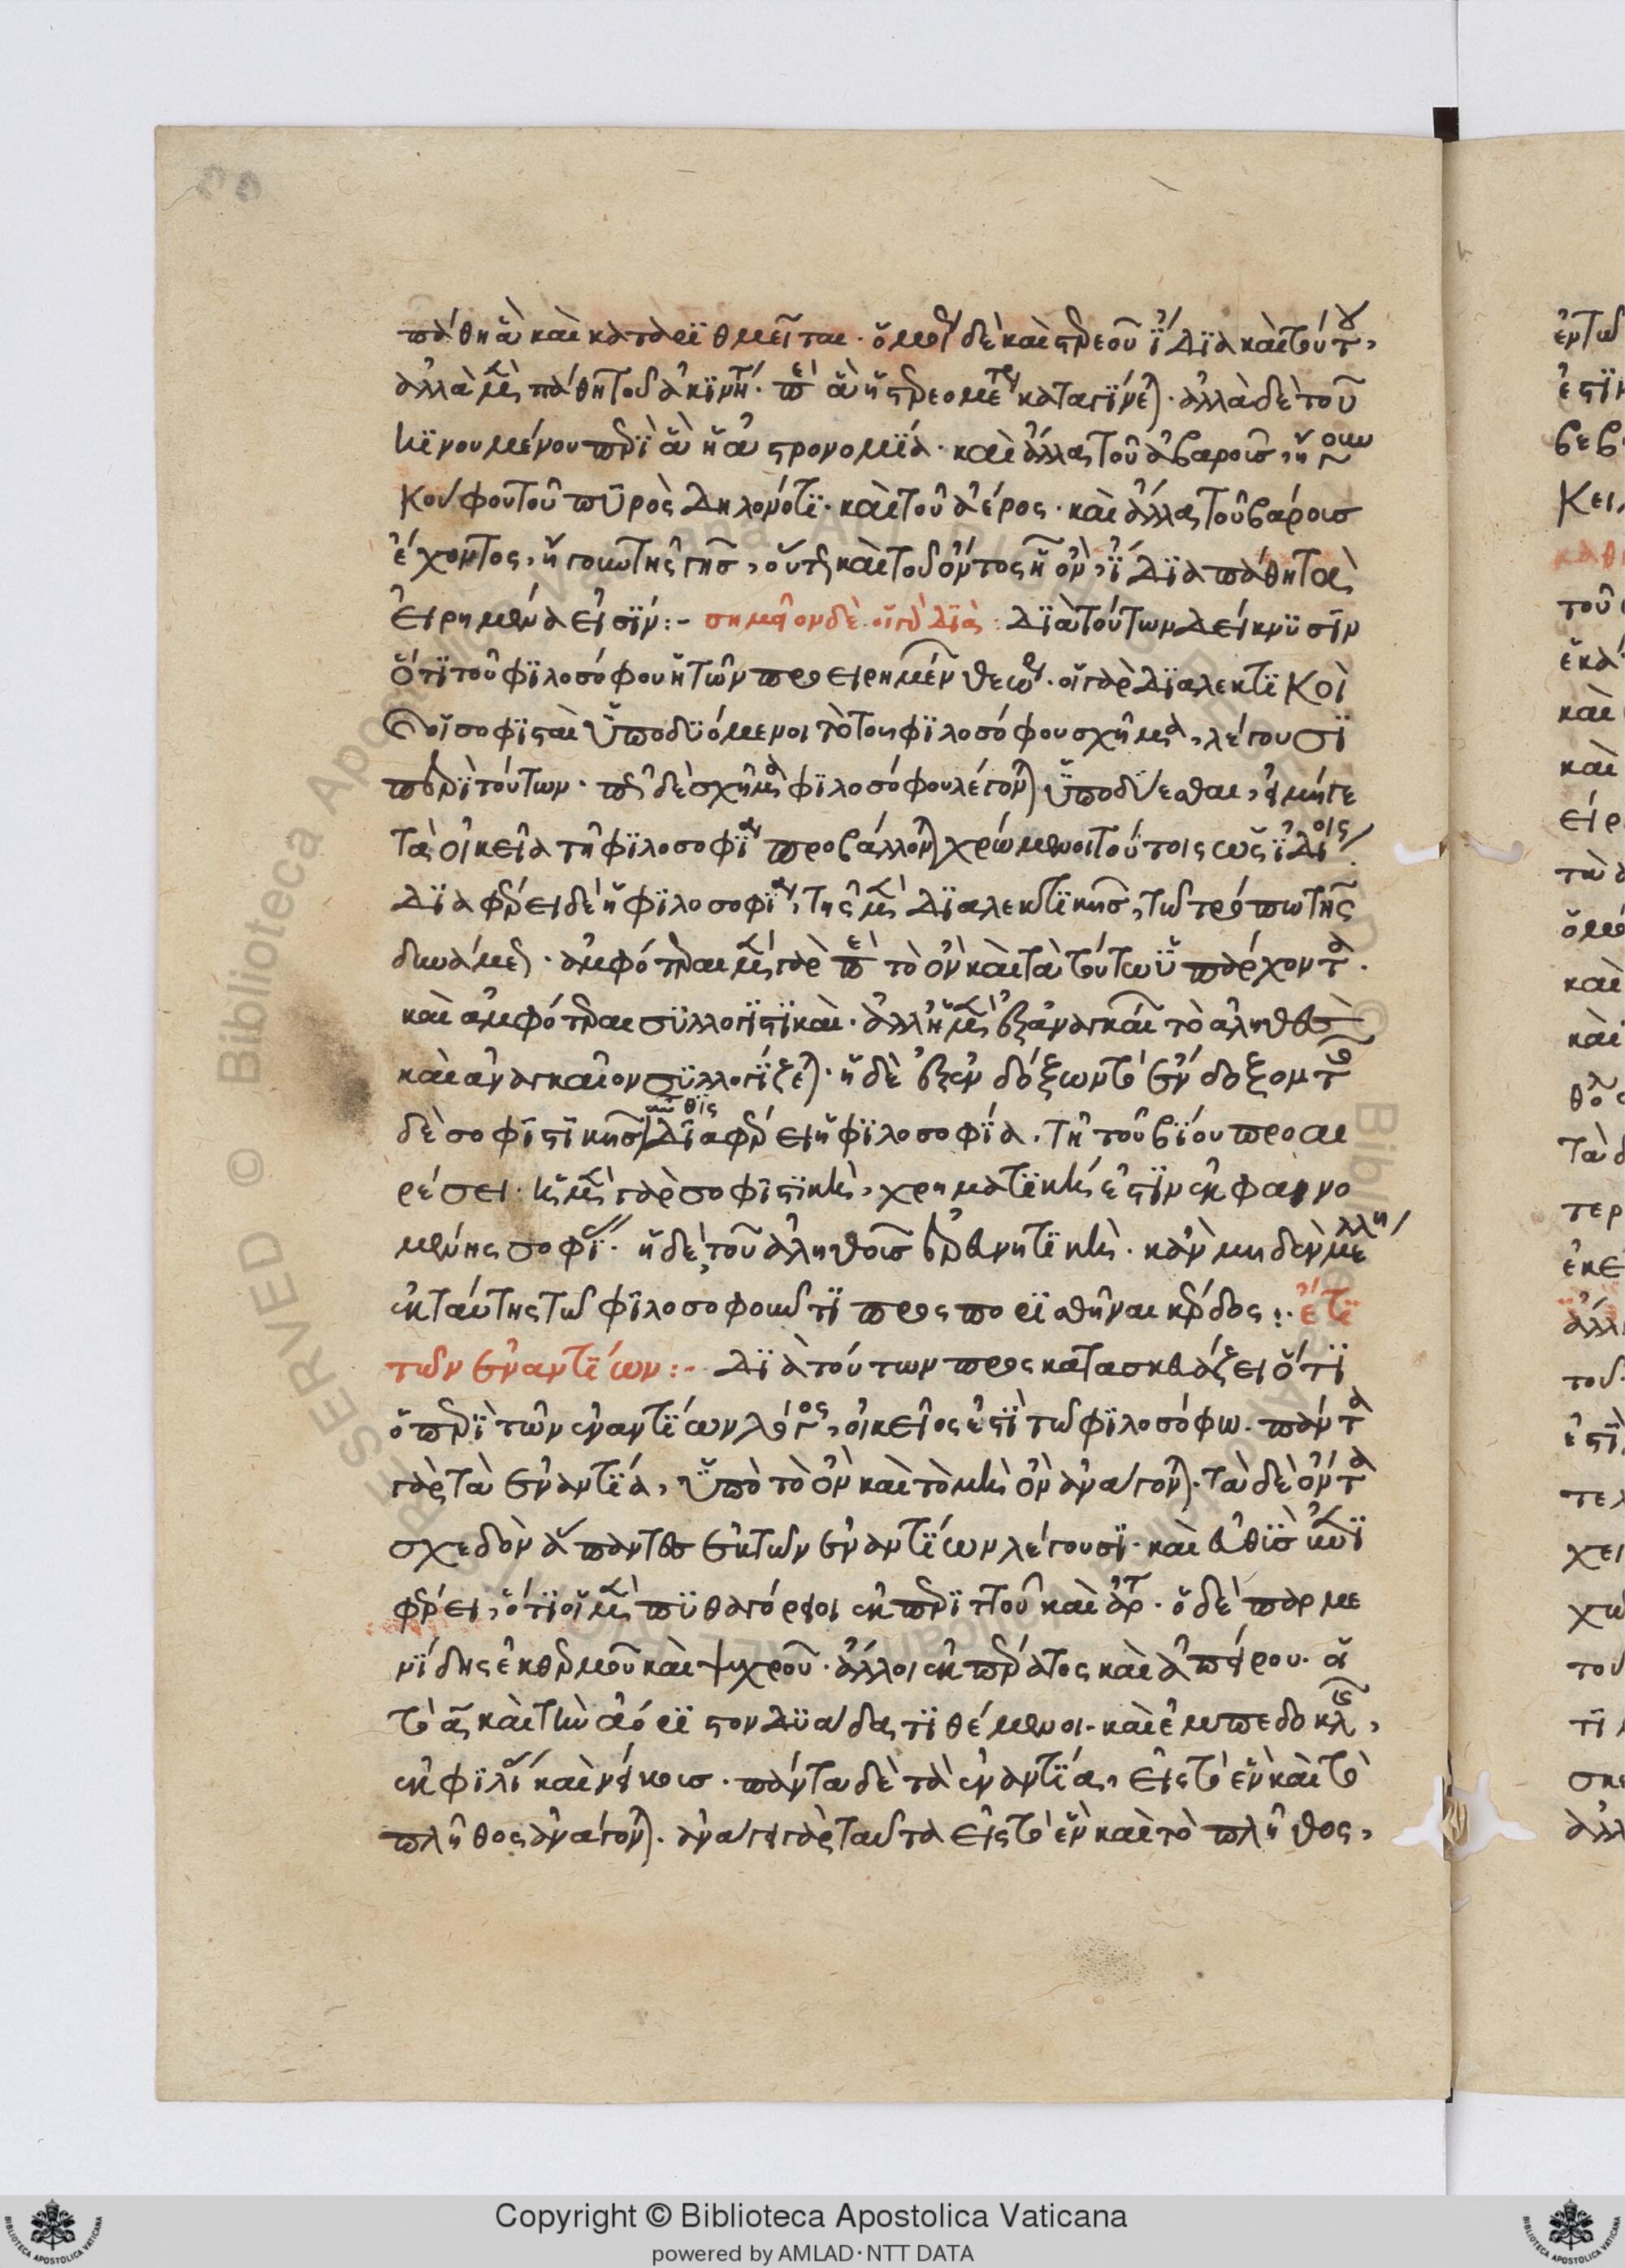 πάθη ἃ καὶ καταριθμεῖται· ὁμοίως δὲ καὶ στερεοῦ ἴδια καὶ τούτου,
ἀλλὰ μὲν πάθη τοῦ ἀκινήτου· περὶ ἃ ἡ στερεομετρία καταγίνεται· ἀλλὰ δὲ τοῦ
κινουμένου περὶ ἃ ἡ ἀστρονομία· καὶ ἄλλα τοῦ ἀβαροῦς, ἤγουν
κούφου τοῦ πυρὸς δηλονότι· καὶ τοῦ ἀέρος· καὶ ἄλλα τοῦ βάρους
ἔχοντος, ἤγουν τῆς γῆς, οὕτως καὶ τοῦ ὄντος ᾗ ὄν, ἴδια πάθη τὰ
εἰρημένα εἰσίν:- σημεῖον δὲ· οἱ γὰρ δια: Διὰ τούτων δείκνυσιν
ὅτι τοῦ φιλοσόφου ἡ τῶν προειρημένων θεωρία· οἱ γὰρ διαλεκτικοὶ
οἱ σοφισταὶ ὑποδυόμενοι τὸ τοῦ φιλοσόφου σχῆμα, λέγουσι
περὶ τούτων· τὸ δὲ σχῆμα φιλοσόφου λέγονται ὑποδύεσθαι, εἰ μήγε
τὰ οἰκεῖα τῆ φιλοσοφία προβάλλονται χρώμενοι τούτοις ὡς ἰδίοις
διαφέρει δὲ ἡ φιλοσοφία, τῆς μὲν διαλεκτικῆς, τῶ τρόπω τῆς
δυνάμεως· ἀμφότεραι μὲν γὰρ περὶ τὸ ὂν καὶ τὰ τούτω ὑπάρχοντα.
καὶ ἀμφότεραι συλλογιστικαὶ· ἀλλ' ἡ μὲν ἐξ ἀναγκαίων τὸ ἀληθὲς
καὶ ἀναγκαῖον συλλογίζεται· ἡ δὲ ἐξ ἐνδόξων τὸ ἔνδοξον τῆς
δὲ σοφιστικῆς αὖθις διαφέρει ἡ φιλοσοφία. τῆ τοῦ βίου προαι
ρέσει· ἡ μὲν γὰρ σοφιστικὴ, χρηματικὴ ἐστὶν ἐκ φαινο
μένης σοφίας· ἡ δὲ, τοῦ ἀληθοῦς ἐρευνητικὴ· κἂν μηδὲν μέλλη
ἐκ ταύτης τῶ φιλοσοφοῦντι προσποριθῆναι κέρδος:· ἔτι
τῶν ἐναντίων:- Διὰ τούτων προσκατασκευάζει ὅτι
ὁ περὶ τῶν ἐναντίων λόγος, οἰκεῖος ἐστὶ τῶ φιλοσόφω· πάντα
γὰρ τὰ ἐναντία, ὑπὸ τὸ ὂν καὶ τὸ μὴ ὂν ἀνάγονται· τὰ δὲ ὄντα
σχεδὸν ἅπαντες ἐκ τῶν ἐναντίων λέγουσι· καὶ εὐθὺς
φέρει, ὅτι οἱ μὲν πυθαγόρειοι ἐκ περιττοῦ καὶ ἀρτίου· ὁ δὲ παρμε
νίδης ἐκ θερμοῦ καὶ ψυχροῦ· ἄλλοι ἐκ πέρατος καὶ ἀπείρου· οἱ
τὸ ἓν καὶ τὴν ἀόριστον δυάδα τιθέμενοι· καὶ ἐμπεδοκλῆς,
ἐκ φιλίας καὶ νείκους· πάντα δὲ τὰ ἐναντία, εἰς τὸ ἓν καὶ τὸ
πλῆθος ἀνάγονται· ἀνάγει γὰρ ταῦτα εἰς τὸ ἓν καὶ τὸ πλῆθος,